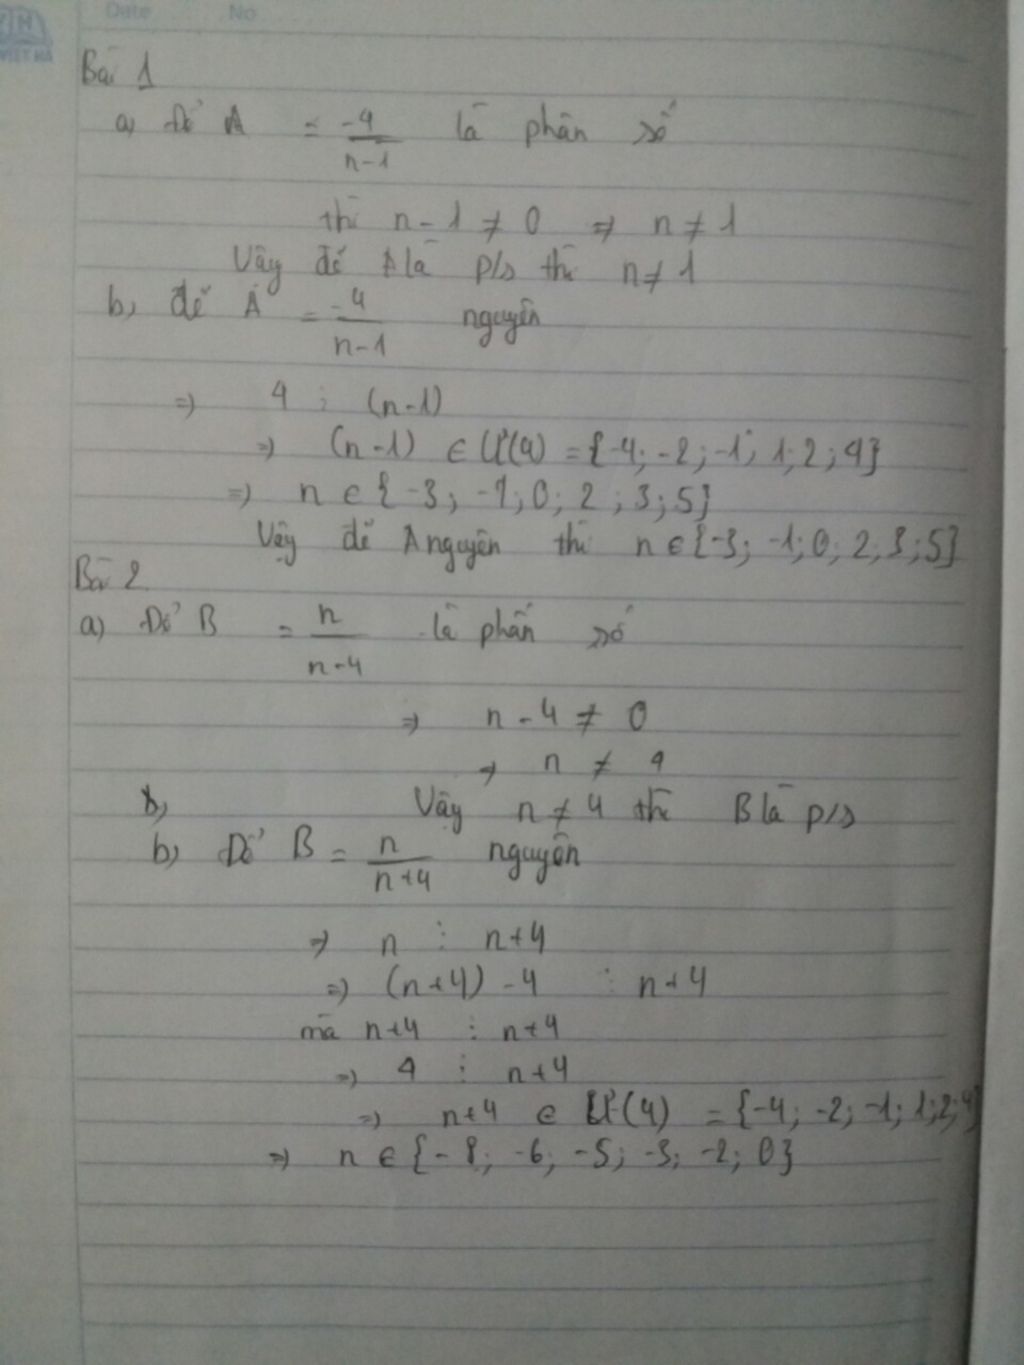 Date No
VIET HA
Bài 1
a) Để A = -4/(n-1) là phân số
thì n-1 ≠ 0 => n ≠ 1
Vậy để A là p/s thì n ≠ 1
b) để A = -4/(n-1) nguyên
=> 4 ⋮ (n-1)
=> (n-1) ∈ Ư(4) = {-4; -2; -1; 1; 2; 4}
=> n ∈ {-3; -1; 0; 2; 3; 5}
Vậy để A nguyên thì n ∈ {-3; -1; 0; 2; 3; 5}
Bài 2
a) Để B = n/(n-4) là phân số
=> n - 4 ≠ 0
=> n ≠ 4
b) Vậy n ≠ 4 thì B là p/s
b) Để B = n/(n+4) nguyên
=> n ⋮ n+4
=> (n+4) - 4 ⋮ n+4
mà n+4 ⋮ n+4
=> 4 ⋮ n+4
=> n+4 ∈ Ư(4) = {-4; -2; -1; 1; 2; 4}
=> n ∈ {-8; -6; -5; -3; -2; 0}